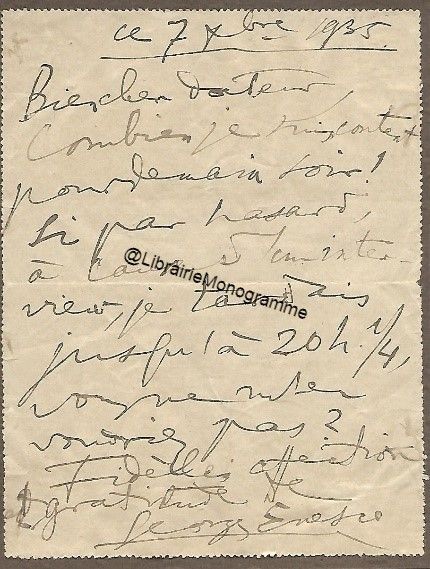 ce 7 Xbre 1935.
Bien cher Docteur,
Combien je suis content
pour demain soir!
Si par hasard,
à cause d'un inter-
view, je tardais
jusqu'à 20h. 1/4,
vous ne m'en
voudriez pas?
Fidèle affection
et gratitude de
Georges Enesco
@LibrairieMonogramme